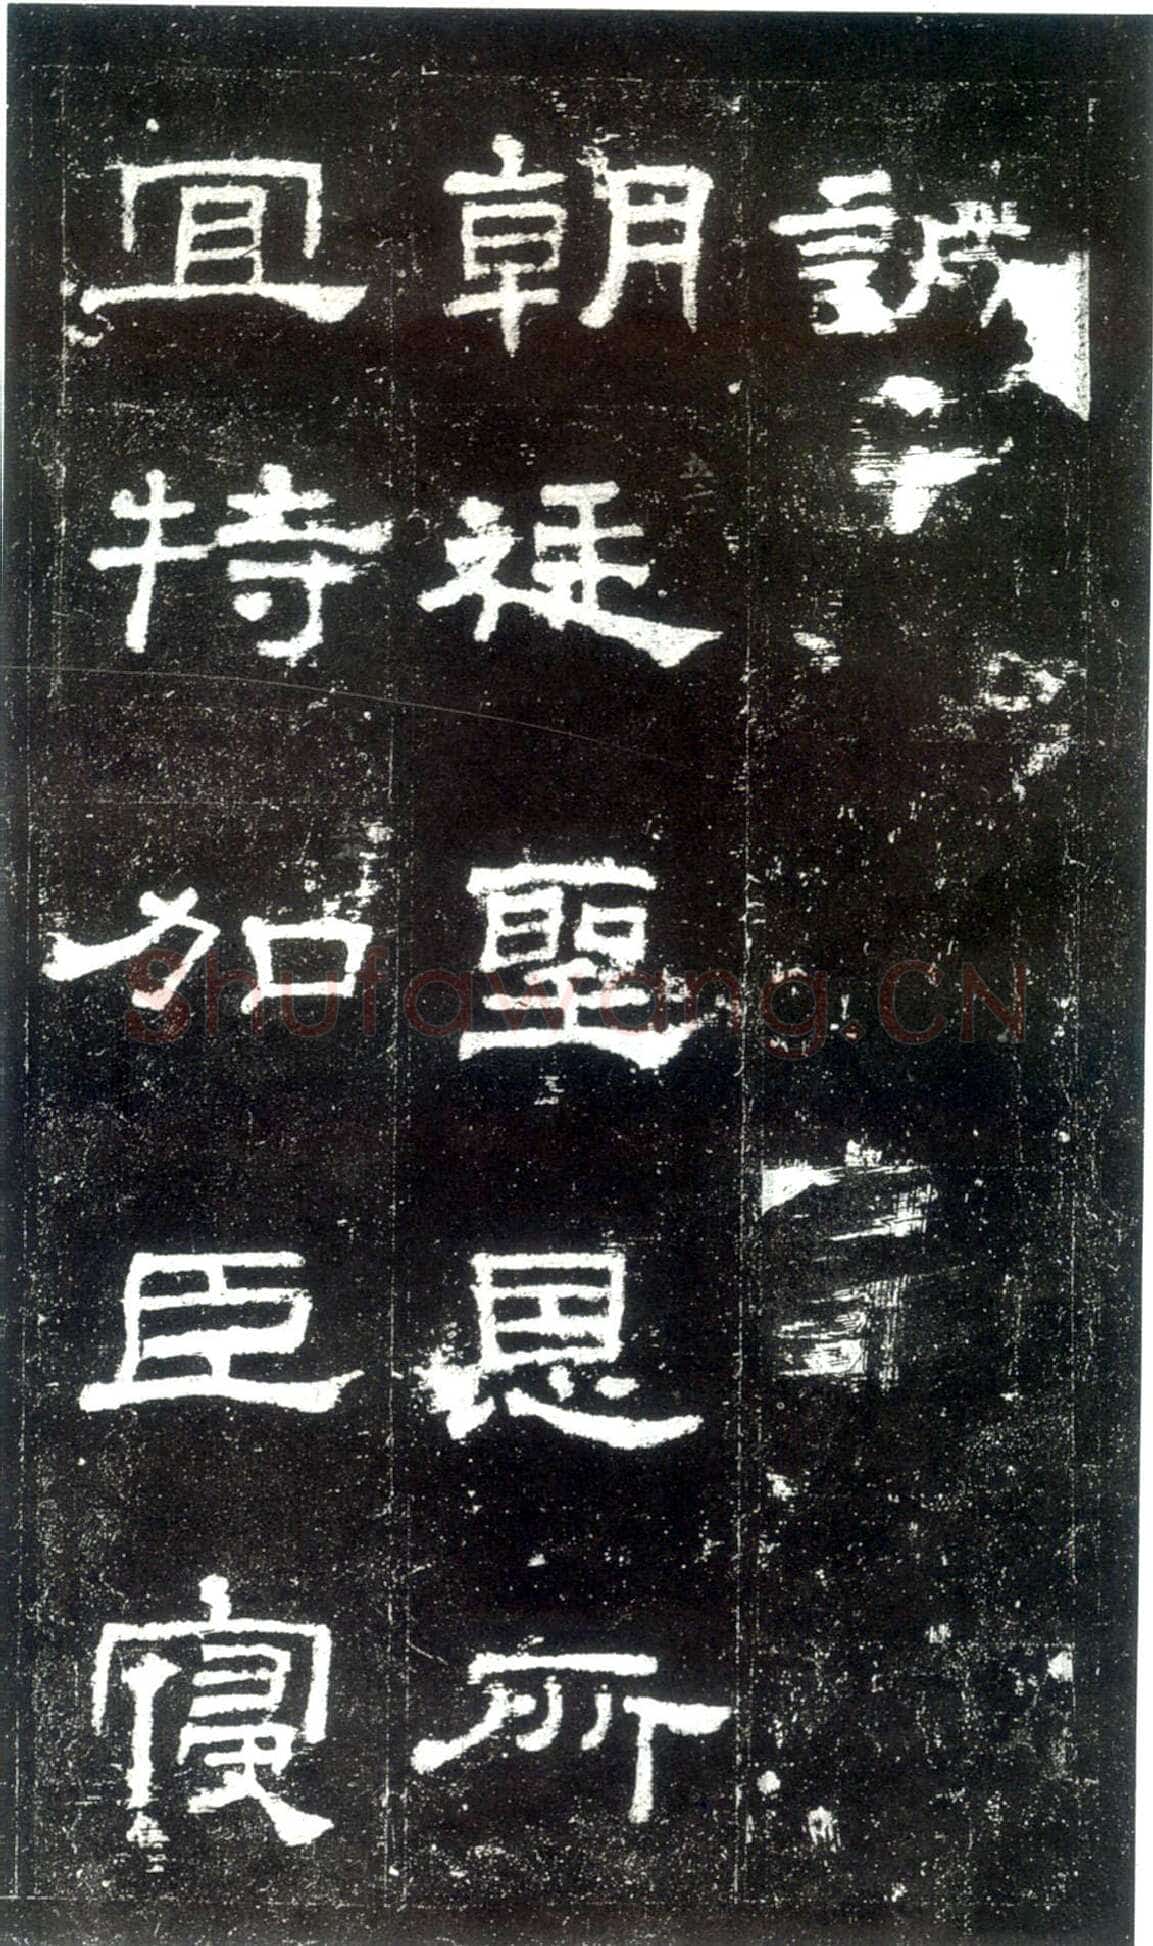 誠
朝廷聖恩所
宜特加臣寢
Shufawang.CN